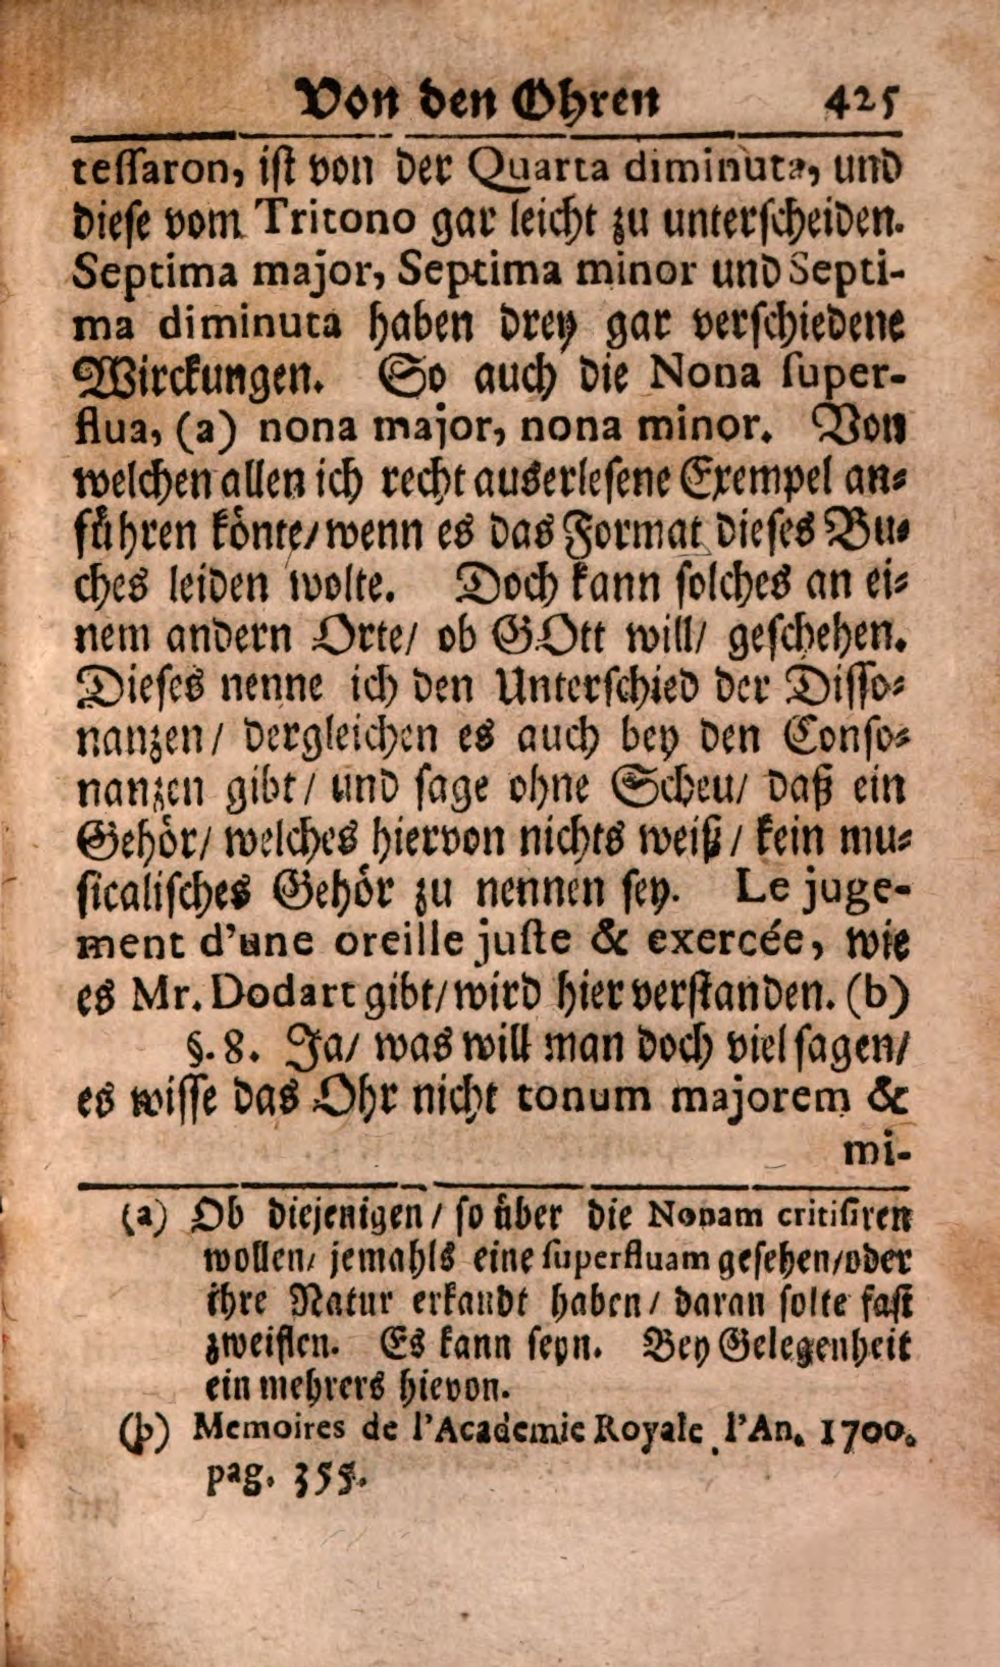 Von den Ohren 425
tessaron, ist von der Quarta diminuta, und
diese vom Tritono gar leicht zu unterscheiden.
Septima major, Septima minor und Septi-
ma diminuta haben drey gar verschiedene
Wirckungen. So auch die Nona super-
flua, (a) nona major, nona minor. Von
welchen allen ich recht auserlesene Exempel an-
führen könte/ wenn es das Format dieses Bu-
ches leiden wolte. Doch kann solches an ei-
nem andern Orte/ ob GOtt will/ geschehen.
Dieses nenne ich den Unterschied der Disso-
nanzen/ dergleichen es auch bey den Conso-
nanzen gibt/ und sage ohne Scheu/ daß ein
Gehör/ welches hiervon nichts weiß/ kein mu-
sicalisches Gehör zu nennen sey. Le juge-
ment d'une oreille juste & exercée, wie
es Mr. Dodart gibt/ wird hier verstanden. (b)
§. 8. Ja/ was will man doch viel sagen/
es wisse das Ohr nicht tonum majorem &
mi-
(a) Ob diejenigen/ so über die Nonam critisiren
wollen/ jemahls eine superfluam gesehen/ oder
ihre Natur erkandt haben/ daran solte fast
zweiflen. Es kann seyn. Bey Gelegenheit
ein mehrers hievon.
(b) Memoires de l'Academie Royale l'An. 1700.
pag. 355.